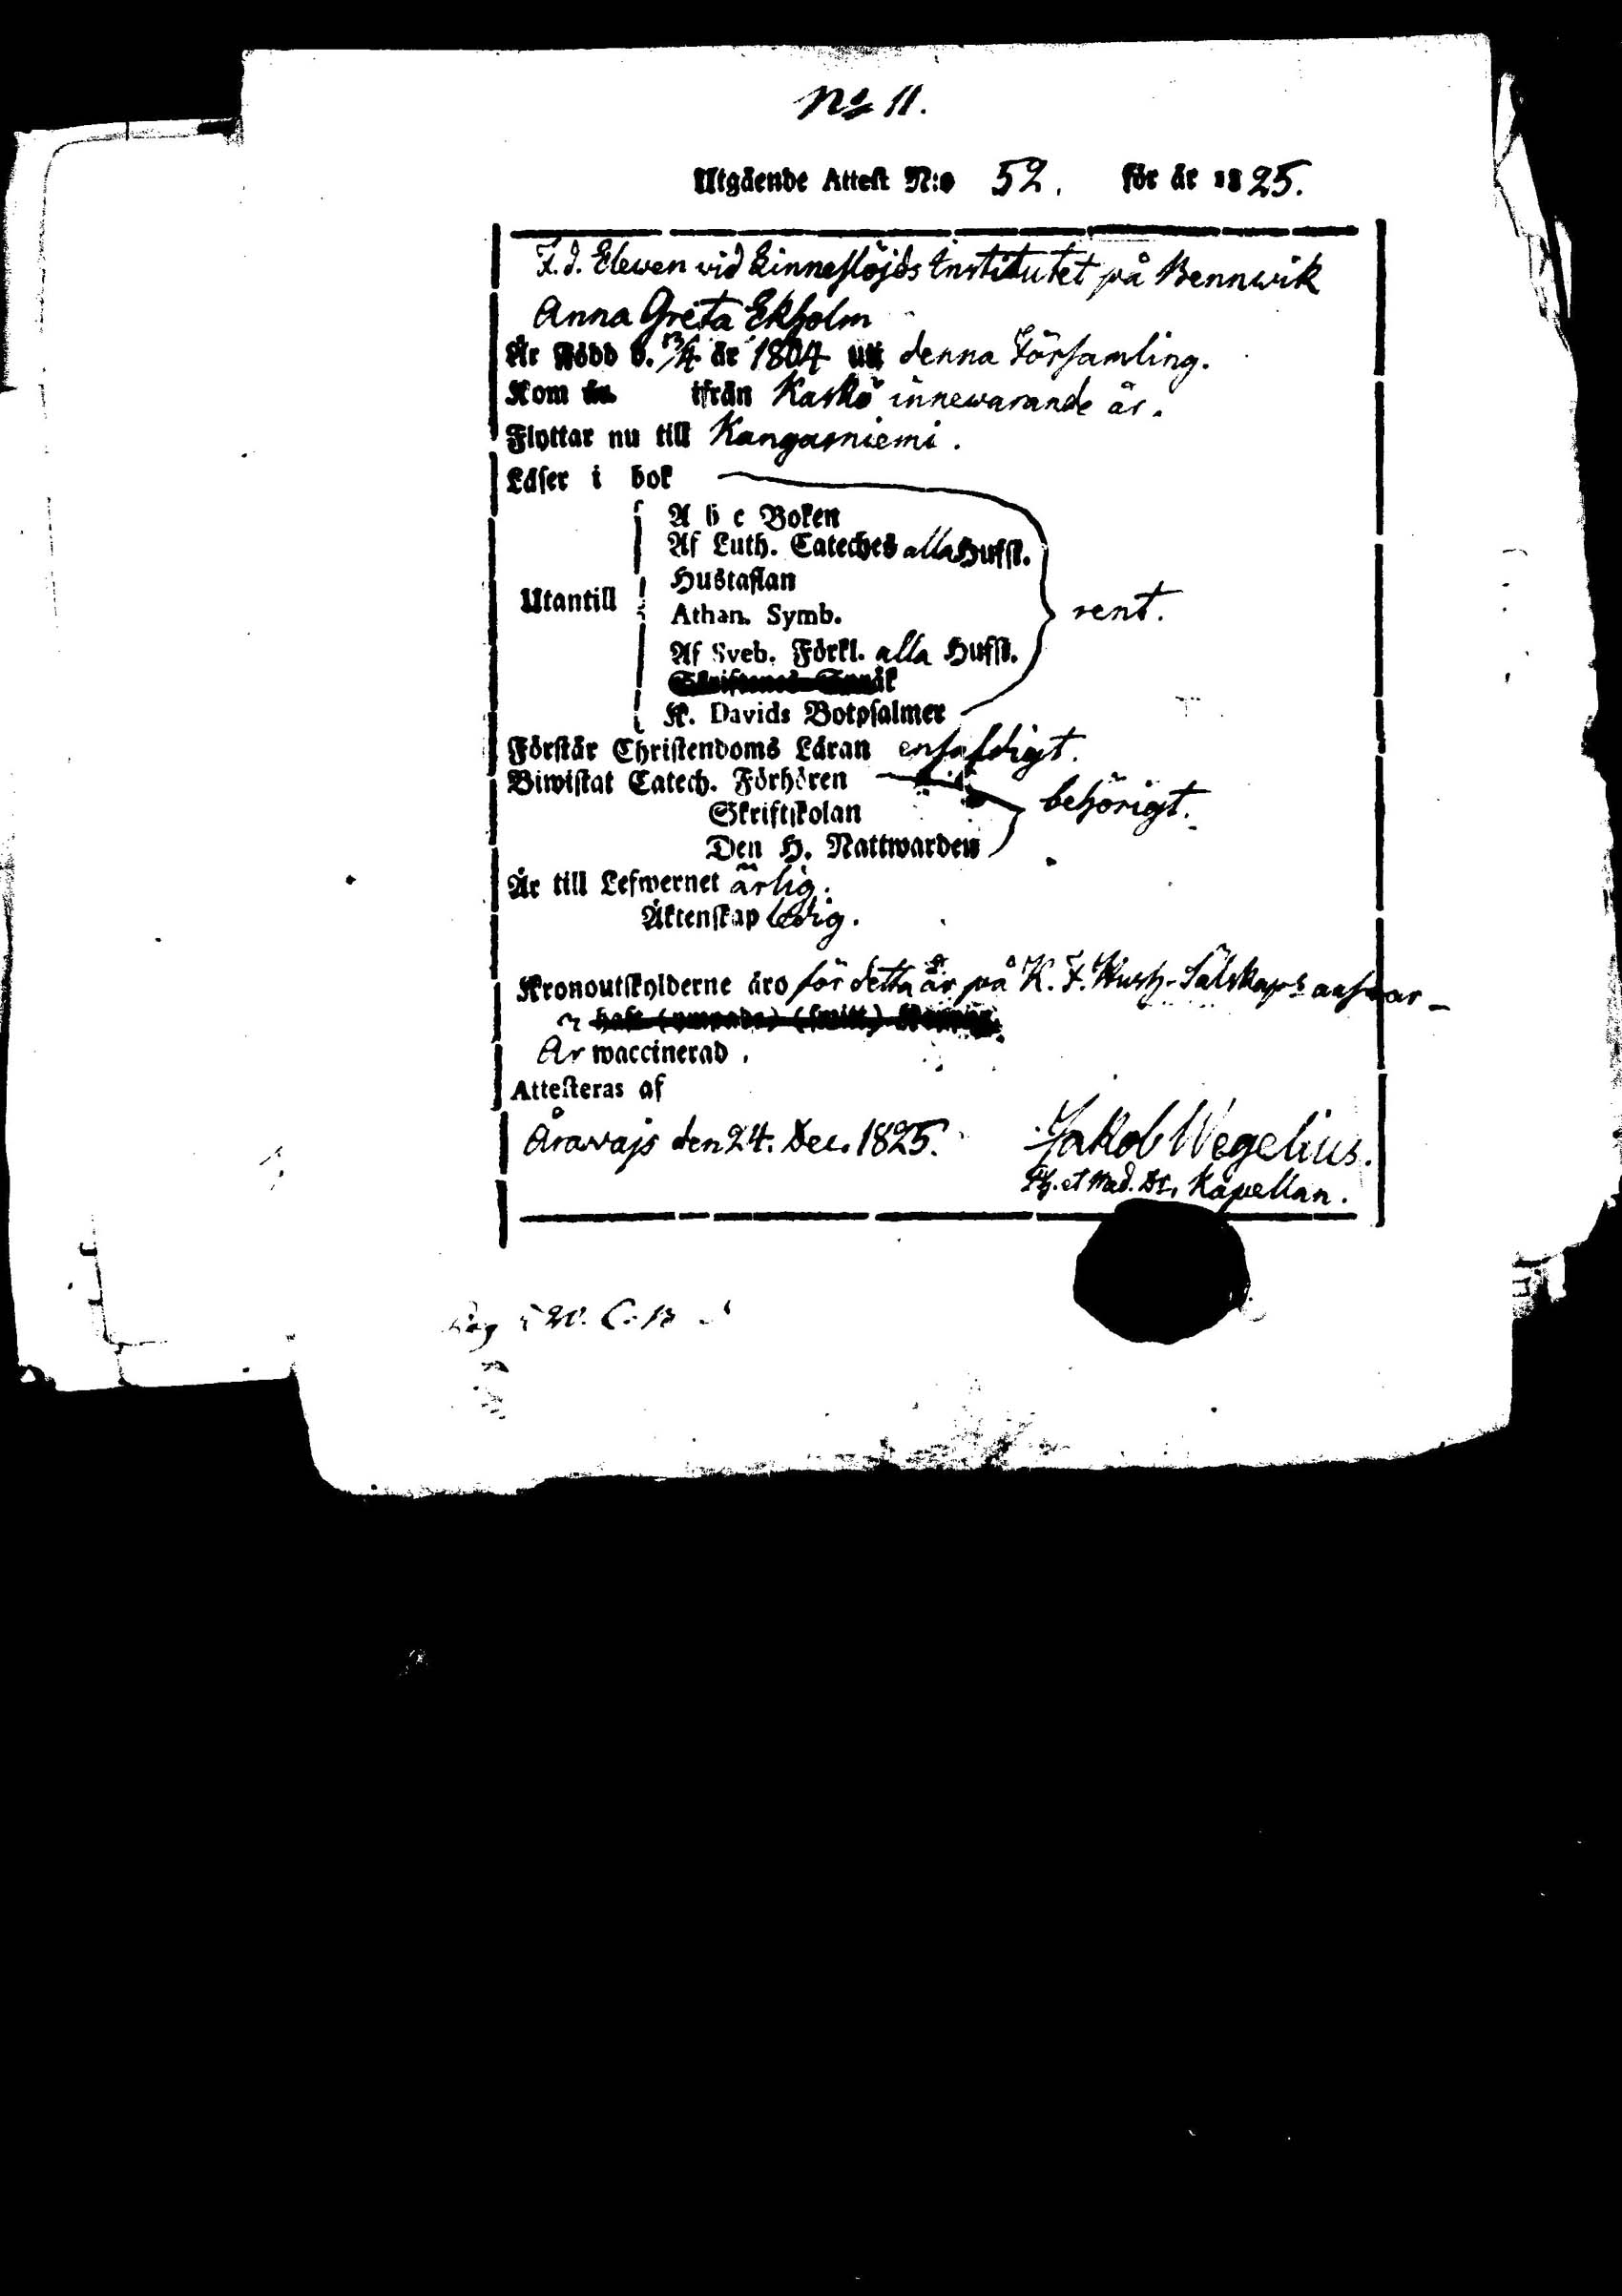 No 11.
Utgående Attest N:o 52. för år 1825.
F. d. Elewen vid Linneslöjds Institutet på Bennwik
Anna Greta Ekholm
Är Född d. år 1804 uti denna Församling.
Kom ifrån Kaskö innewarande år.
Flyttar nu till Kangasniemi.
Läser i bok
A b c Boken
Af Luth. Cateches alla Hufst.
Hustaflan
Utantill
Athan. Symb.
rent.
Af Sveb. Förkl. alla Hufst.
K. Davids Botpsalmer
Förstår Christendoms Läran enfaldigt.
Biwistat Catech. Förhören
behörigt.
Skriftskolan
Den H. Nattwarden
Är till Lefwernet ärlig.
Äktenskap ledig.
Kronoutskylderne äro för detta år på K. F. Hush. Sälskaps answar
Är waccinerad.
Attesteras af
Årawajs den 24. Dec. 1825. Jakob Wegelius.
Ph. et Med. Dr, Kapellan.